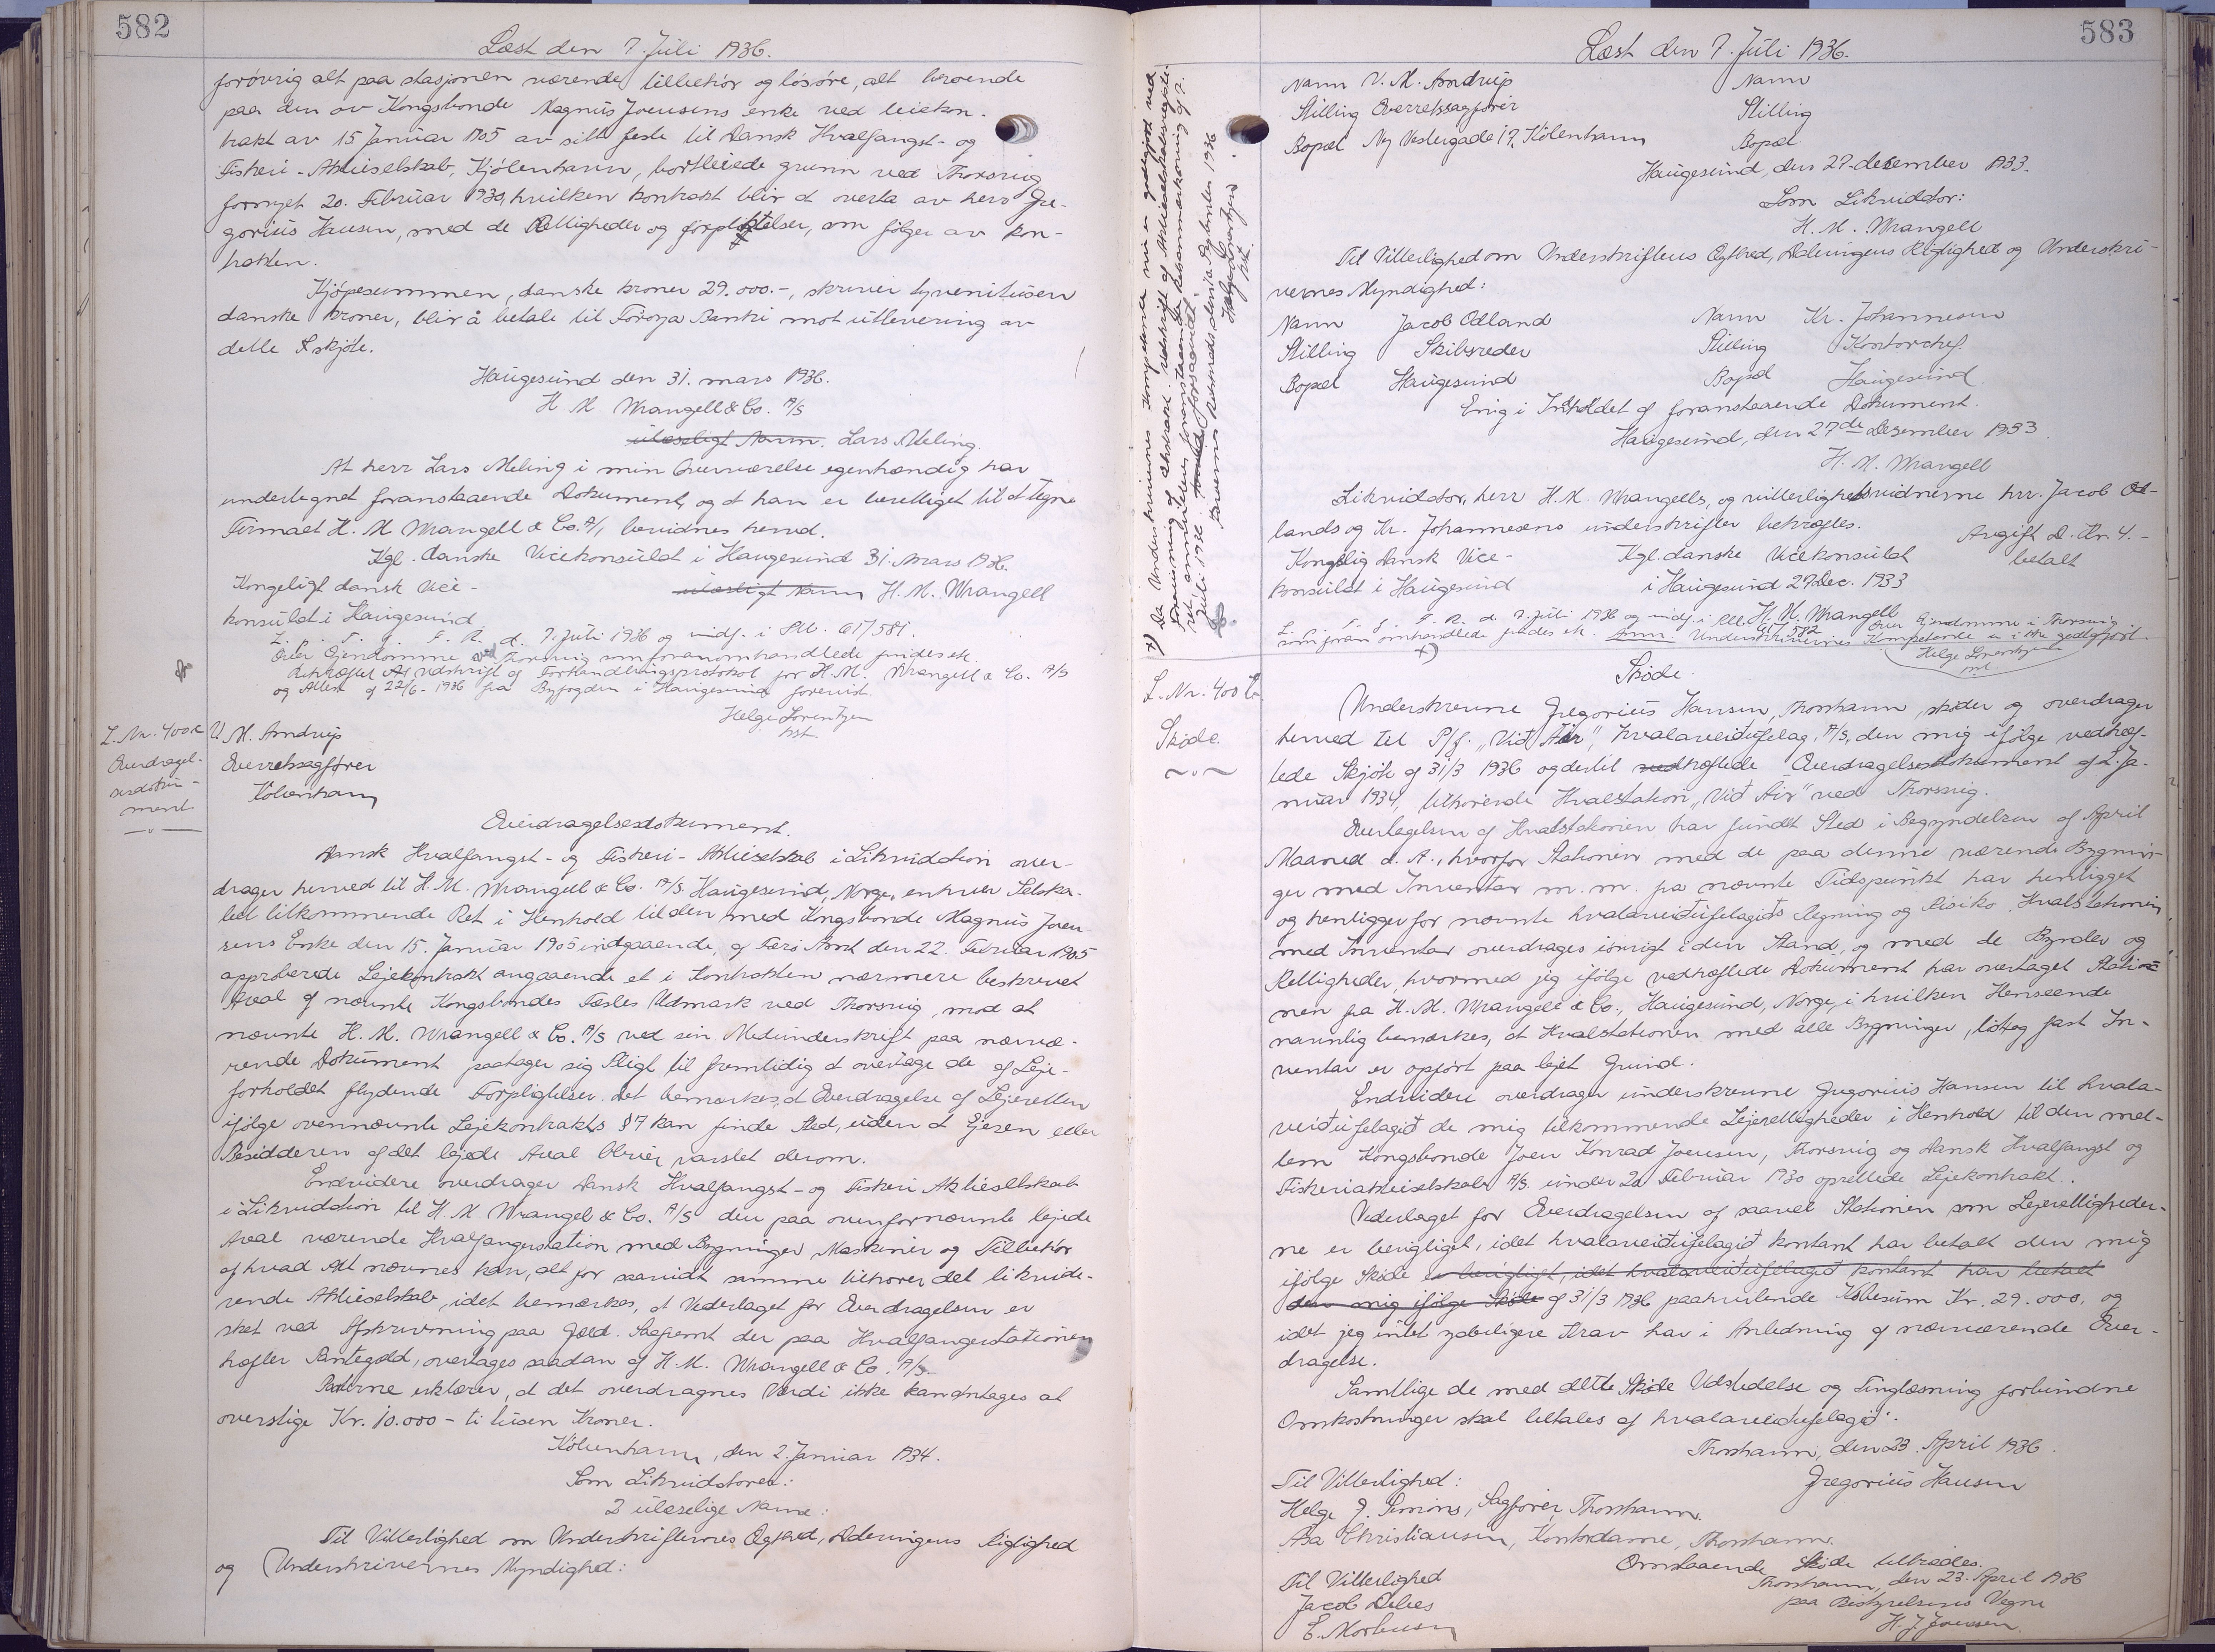 582
Læst den 7. Juli 1936.
forövrig alt paa stasjonen værende tilbehör og lösöre, alt beroende
paa den av Kongsbonde Magnus Joensens enke ved leiekon-
trakt av 15 Januar 1905 av sitt feste til Dansk Hvalfangst- og
Fiskeri-Aktieselskab, Kjöbenhavn, bortleiede grunn ved Thorsvig
fornyet 20. Februar 1930, hvilken kontrakt blir at overta av herr Gre-
gorius Hansen, med de Rettigheder og forpliktelser, som fölger av kon-
trakten.
Kjöpesummen, danske kroner 29.000.-, skriver tyvenitusen
danske kroner, blir å betale til Föroya Banki mot utlevering av
dette skjöte.
Haugesund den 31. mars 1936.
H. M. Wrangell & Co. A/S
ulæseligt Navn. Lars Meling.
At herr Lars Meling i min Overværelse egenhændig har
undertegnet foranstaaende Dokument, og at han er berettiget til at tegne
Firmaet H. M Wrangell & Co. A/S bevidnes herved.
Kgl. danske Vicekonsulat i Haugesund 31. mars 1936.
Kongeligt dansk Vice-
konsulat i Haugesund
ulæseligt Navn H. M. Wrangell
L. p. T. f. F. R. d. 7. Juli 1936 og indf. i S.M. 61/581.
Over Ejendomme ved Thorsvig som foranomhandlede findes ek.
Bekræftet Udskrift af Forhandlingsprotokol for H. M. Wrangell & Co. A/S
og Attest af 22/6-1936 fra Byfogden i Haugesund forevist.
Helge Lorentzen
hst.
L. Nr. 400a
Overdragel-
sesdoku-
ment
V. M. Amdrup
Overretssagfører
København
Overdragelsesdokument.
Dansk Hvalfangst- og Fiskeri-Aktieselskab i Likvidation over-
drager herved til H. M. Wrangell & Co. A/S. Haugesund, Norge, enhver Selska-
bet tilkommende Ret i Henhold til den med Kongsbonde Magnus Joen-
sens Enke den 15. Januar 1905 indgaaende, af Færø Amt den 22. Februar 1905
approberede Lejekontrakt angaaende et i Kontrakten nærmere beskrevet
Areal af nævnte Kongsbondes Fæstes Udmark ved Thorsvig, mod at
nævnte H. M. Wrangell & Co. A/S ved sin Medunderskrift paa nærvæ-
rende Dokument paatager sig Pligt til fremtidig at overtage de af Leje-
forholdet flydende Forpligtelser. Det bemærkes, at Overdragelse af Lejeretten
ifølge ovennævnte Lejekontrakts § 7 kan finde Sted, uden at Ejeren eller
Besidderen af det lejede Areal bliver varslet derom.
Endvidere overdrager Dansk Hvalfangst- og Fiskeri Aktieselskab
i Likvidation til H. M Wrangel & Co. A/S den paa ovenfornævnte lejede
Areal værende Hvalfangerstation med Bygninger, Maskiner og Tilbehør
af hvad Art nævnes kan, alt for saavidt samme tilhører det likvide-
rende Aktieselskab, idet bemærkes, at Vederlaget for Overdragelsen er
sket ved Afskrivning paa Gæld. Saafremt der paa Hvalfangerstationen
hæfter Pantegæld, overtages saadan af H. M. Wrangell & Co. A/S.
Parterne erklærer, at det overdragnes Værdi ikke kan antages at
overstige Kr. 10.000 - ti tusen Kroner.
København, den 2. Januar 1934.
Som Likvidatorer:
2 ulæselige Navne:
Til Vitterlighed om Underskrifternes Ægthed, Dateringens Rigtighed
og Underskrivernes Myndighed:
583
Læst den 7. Juli 1936.
Navn V. M. Amdrup
Navn
Stilling Overretssagfører
Stilling
Bopæl Ny Vestergade 17, København
Bopæl
Haugesund, den 27. desember 1933.
Som Likvidator:
H. M. Wrangell
Til Vitterlighed om Underskriftens Ægthed, Dateringens Rigtighed og Underskri-
vernes Myndighed:
Navn Jacob Odland
Navn Kr. Johannesen
Stilling Skibsreder
Stilling Kontorchef.
Bopæl Haugesund
Bopæl Haugesund.
Enig i Indholdet af foranstaaende Dokument.
Haugesund, den 27de Desember 1933.
H. M. Wrangell
Likvidator, herr H. M. Wrangells, og vitterlighetsvidnerne hrr. Jacob Od-
lands og Kr. Johannesens underskrifter bekræftes.
Avgift D. Kr. 4.-
betalt
Kongelig Dansk Vice-
konsulat i Haugesund
Kgl. danske Vicekonsulat
i Haugesund 27 Dec. 1933
H. M. Wrangell
L. p. T. f. F. R. d. 7. Juli 1936 og indf. i S.M. 61/582 Over Ejendomme i Thorsvig
som foran omhandlede findes ek. Anm. Underskrivernes Kompetence er ikke godtgjort.
Helge Lorentzen
hst.
x) Da Underskrivernes Kompetence nu er godtgjort ved
Fremvisning af ekstrakt Udskrift af Aktieselskabsregiste-
ret, annulleres foranstaaende Retsanmærkning af 7.
Juli 1936.
Færøernes Sorenskriveri, den 1a September 1936
Helge Lorentzen
hst.
L. Nr. 400 b
Skøde.
Skøde.
Underskrevne Gregorius Hansen, Thorshavn, skøder og overdrager
herved til P/f. "Við Áir", hvalaveiðufelag, A/S, den mig ifølge vedhæf-
tede Skjøte af 31/3 1936 og dertil vedhæftede Overdragelsesdokument af 2. Ja-
nuar 1934, tilhørende Hvalstation "Við Áir" ved Thorsvig.
Overtagelsen af Hvalstationen har fundet Sted i Begyndelsen af April
Maaned d. A., hvorfor Stationen med de paa denne værende Bygnin-
ger med Inventar m. m. fra nævnte Tidspunkt har henligget
og henligger for nævnte hvalaveiðufelagiðs Regning og Risiko. Hvalstationen
med Inventar overdrages iøvrigt i den Stand, og med de Byrder og
Rettigheder, hvormed jeg ifølge vedhæftede Dokument har overtaget Statio-
nen fra H. M. Wrangell & Co., Haugesund, Norge, i hvilken Henseende
navnlig bemærkes, at Hvalstationen med alle Bygninger, løst og fast In-
ventar er opført paa lejet Grund.
Endvidere overdrager underskrevne Gregorius Hansen til hvala-
veiðufelagið de mig tilkommende Lejerettigheder i Henhold til den mel-
lem Kongsbonde Joen Konrad Joensen, Thorsvig og Dansk Hvalfangst og
Fiskeriaktieselskab A/S. under 20 Februar 1930 oprettede Lejekontrakt.
Vederlaget for Overdragelsen af saavel Stationen som Lejerettigheder-
ne er berigtiget, idet hvalaveiðufelagið kontant har betalt den mig
ifølge Skøde er berigtiget, idet hvalaveiðufelagið kontant har betalt
den mig ifølge Skøde af 31/3 1936 paahvilende Købesum Kr. 29.000, og
idet jeg intet yderligere Krav har i Anledning af nærværende Over-
dragelse.
Samtlige de med dette Skøde Udstedelse og Tinglæsning forbundne
Omkostninger skal betales af hvalaveiðufelagið.
Thorshavn, den 23. April 1936.
Gregorius Hansen
Til Vitterlighed:
Helge J. Simons, Sagfører, Thorshavn.
Asa Christiansen, Kontordame, Thorshavn.
Omstaaende Skøde tiltrædes.
Thorshavn, den 23. April 1936
paa Bestyrelsens Vegne
H. J. Joensen.
Til Vitterlighed
Jacob Debes
E. Mortensen